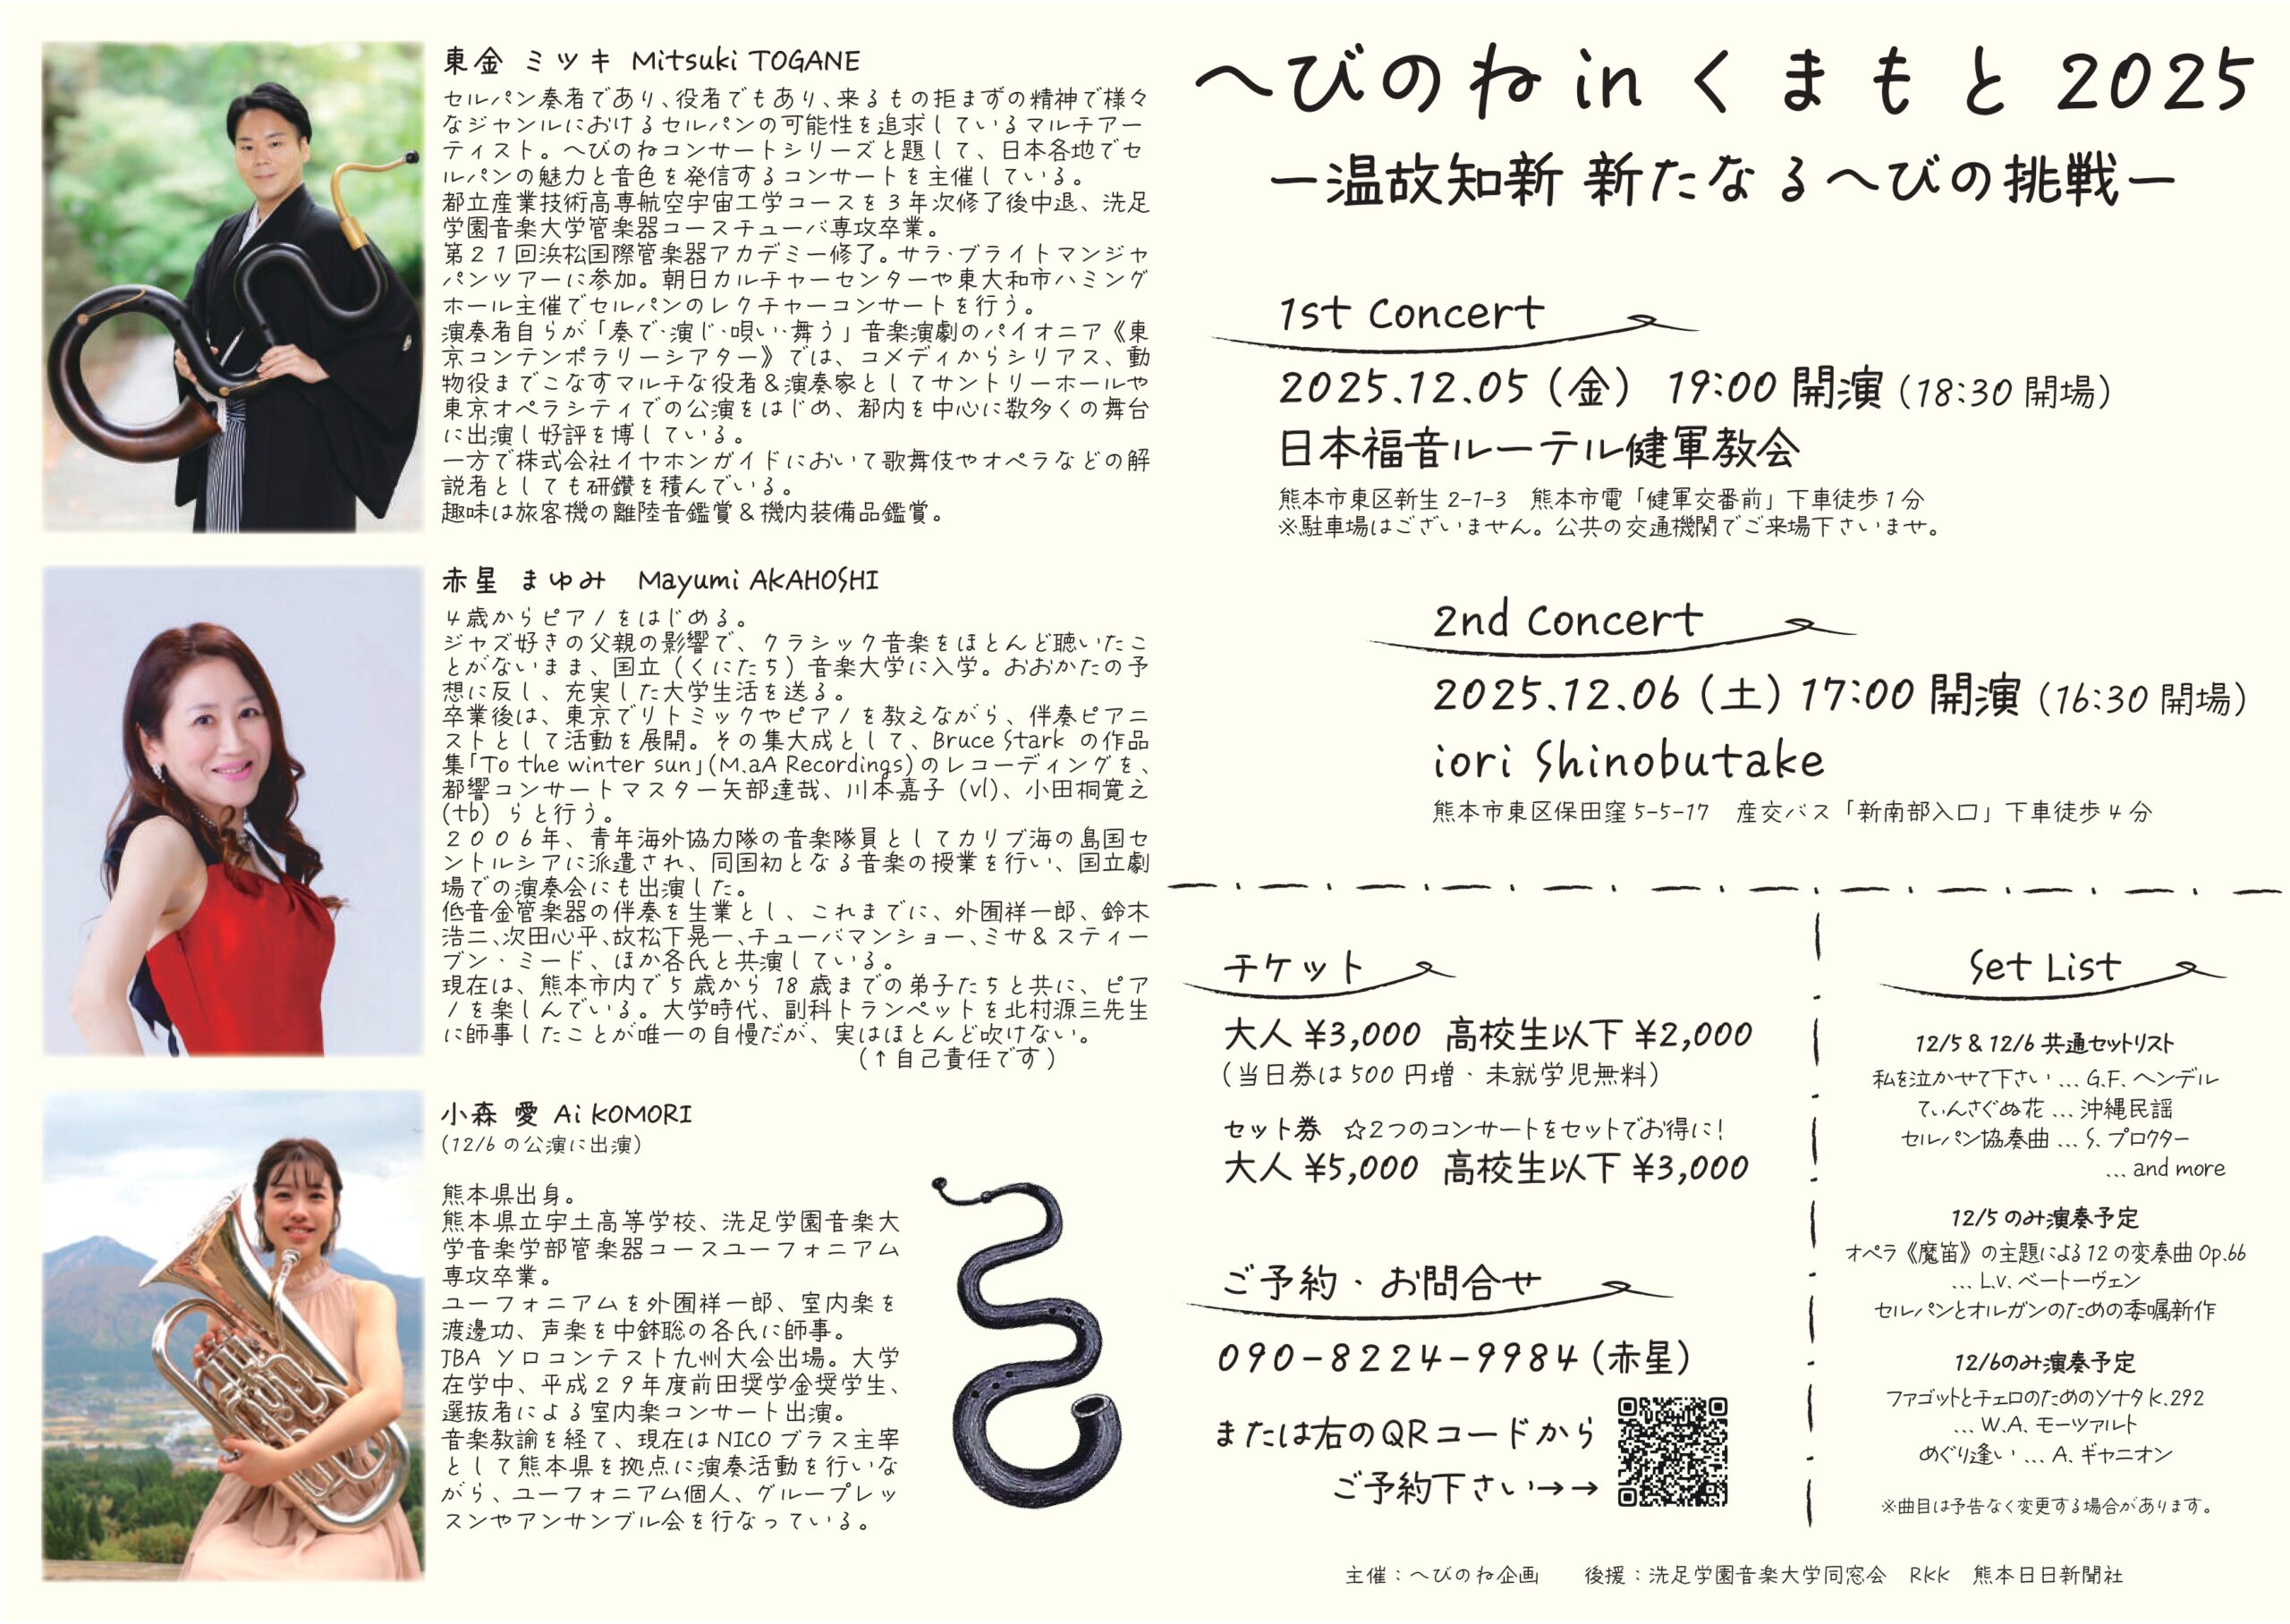 東金 ミツキ Mitsuki TOGANE
セルパン奏者であり、役者でもあり、来るもの拒まずの精神で様々
なジャンルにおけるセルパンの可能性を追求しているマルチアー
ティスト。へびのねコンサートシリーズと題して、日本各地でセ
ルパンの魅力と音色を発信するコンサートを主催している。
都立産業技術高専航空宇宙工学コースを3年次修了後中退、洗足
学園音楽大学管楽器コースチューバ専攻卒業。
第21回浜松国際管楽器アカデミー修了。サラ・ブライトマンジャ
パンツアーに参加。朝日カルチャーセンターや東大和市ハミング
ホール主催でセルパンのレクチャーコンサートを行う。
演奏者自らが「奏で・演じ・唄い・舞う」音楽演劇のパイオニア《東
京コンテンポラリーシアター》では、コメディからシリアス、動
物役までこなすマルチな役者＆演奏家としてサントリーホールや
東京オペラシティでの公演をはじめ、都内を中心に数多くの舞台
に出演し好評を博している。
一方で株式会社イヤホンガイドにおいて歌舞伎やオペラなどの解
説者としても研鑽を積んでいる。
趣味は旅客機の離陸音鑑賞＆機内装備品鑑賞。
赤星 まゆみ Mayumi AKAHOSHI
4歳からピアノをはじめる。
ジャズ好きの父親の影響で、クラシック音楽をほとんど聴いたこ
とがないまま、国立（くにたち）音楽大学に入学。おおかたの予
想に反し、充実した大学生活を送る。
卒業後は、東京でリトミックやピアノを教えながら、伴奏ピアニ
ストとして活動を展開。その集大成として、Bruce Stark の作品
集「To the winter sun」(M.aA Recordings) のレコーディングを、
都響コンサートマスター矢部達哉、川本嘉子 (vl)、小田桐寛之
(tb) らと行う。
2006年、青年海外協力隊の音楽隊員としてカリブ海の島国セ
ントルシアに派遣され、同国初となる音楽の授業を行い、国立劇
場での演奏会にも出演した。
低音金管楽器の伴奏を生業とし、これまでに、外囿祥一郎、鈴木
浩二、次田心平、故松下晃一、チューバマンショー、ミサ＆スティー
ブン・ミード、ほか各氏と共演している。
現在は、熊本市内で5歳から18歳までの弟子たちと共に、ピア
ノを楽しんでいる。大学時代、副科トランペットを北村源三先生
に師事したことが唯一の自慢だが、実はほとんど吹けない。
（↑自己責任です）
小森 愛 Ai KOMORI
(12/6 の公演に出演)
熊本県出身。
熊本県立宇土高等学校、洗足学園音楽大
学音楽学部管楽器コースユーフォニアム
専攻卒業。
ユーフォニアムを外囿祥一郎、室内楽を
渡邊功、声楽を中鉢聡の各氏に師事。
JBA ソロコンテスト九州大会出場。大学
在学中、平成29年度前田奨学金奨学生、
選抜者による室内楽コンサート出演。
音楽教諭を経て、現在は NICO ブラス主宰
として熊本県を拠点に演奏活動を行いな
がら、ユーフォニアム個人、グループレッ
スンやアンサンブル会を行なっている。
へびのね in くまもと 2025
ー温故知新 新たなるへびの挑戦ー
1st Concert
2025.12.05（金） 19:00 開演（18:30 開場）
日本福音ルーテル健軍教会
熊本市東区新生 2-1-3 熊本市電「健軍交番前」下車徒歩1分
※駐車場はございません。公共の交通機関でご来場下さいませ。
2nd Concert
2025.12.06（土）17:00 開演（16:30 開場）
iori Shinobutake
熊本市東区保田窪 5-5-17 産交バス「新南部入口」下車徒歩4分
チケット
大人 ¥3,000 高校生以下 ¥2,000
（当日券は500円増・未就学児無料）
セット券 ☆2つのコンサートをセットでお得に！
大人 ¥5,000 高校生以下 ¥3,000
ご予約・お問合せ
090-8224-9984（赤星）
または右のQRコードから
ご予約下さい→→
Set List
12/5 & 12/6 共通セットリスト
私を泣かせて下さい … G.F. ヘンデル
てぃんさぐぬ花 … 沖縄民謡
セルパン協奏曲 … S. プロクター
… and more
12/5 のみ演奏予定
オペラ《魔笛》の主題による12の変奏曲 Op.66
… L.v. ベートーヴェン
セルパンとオルガンのための委嘱新作
12/6のみ演奏予定
ファゴットとチェロのためのソナタ K.292
… W.A. モーツァルト
めぐり逢い … A. ギャニオン
※曲目は予告なく変更する場合があります。
主催：へびのね企画 後援：洗足学園音楽大学同窓会 RKK 熊本日日新聞社